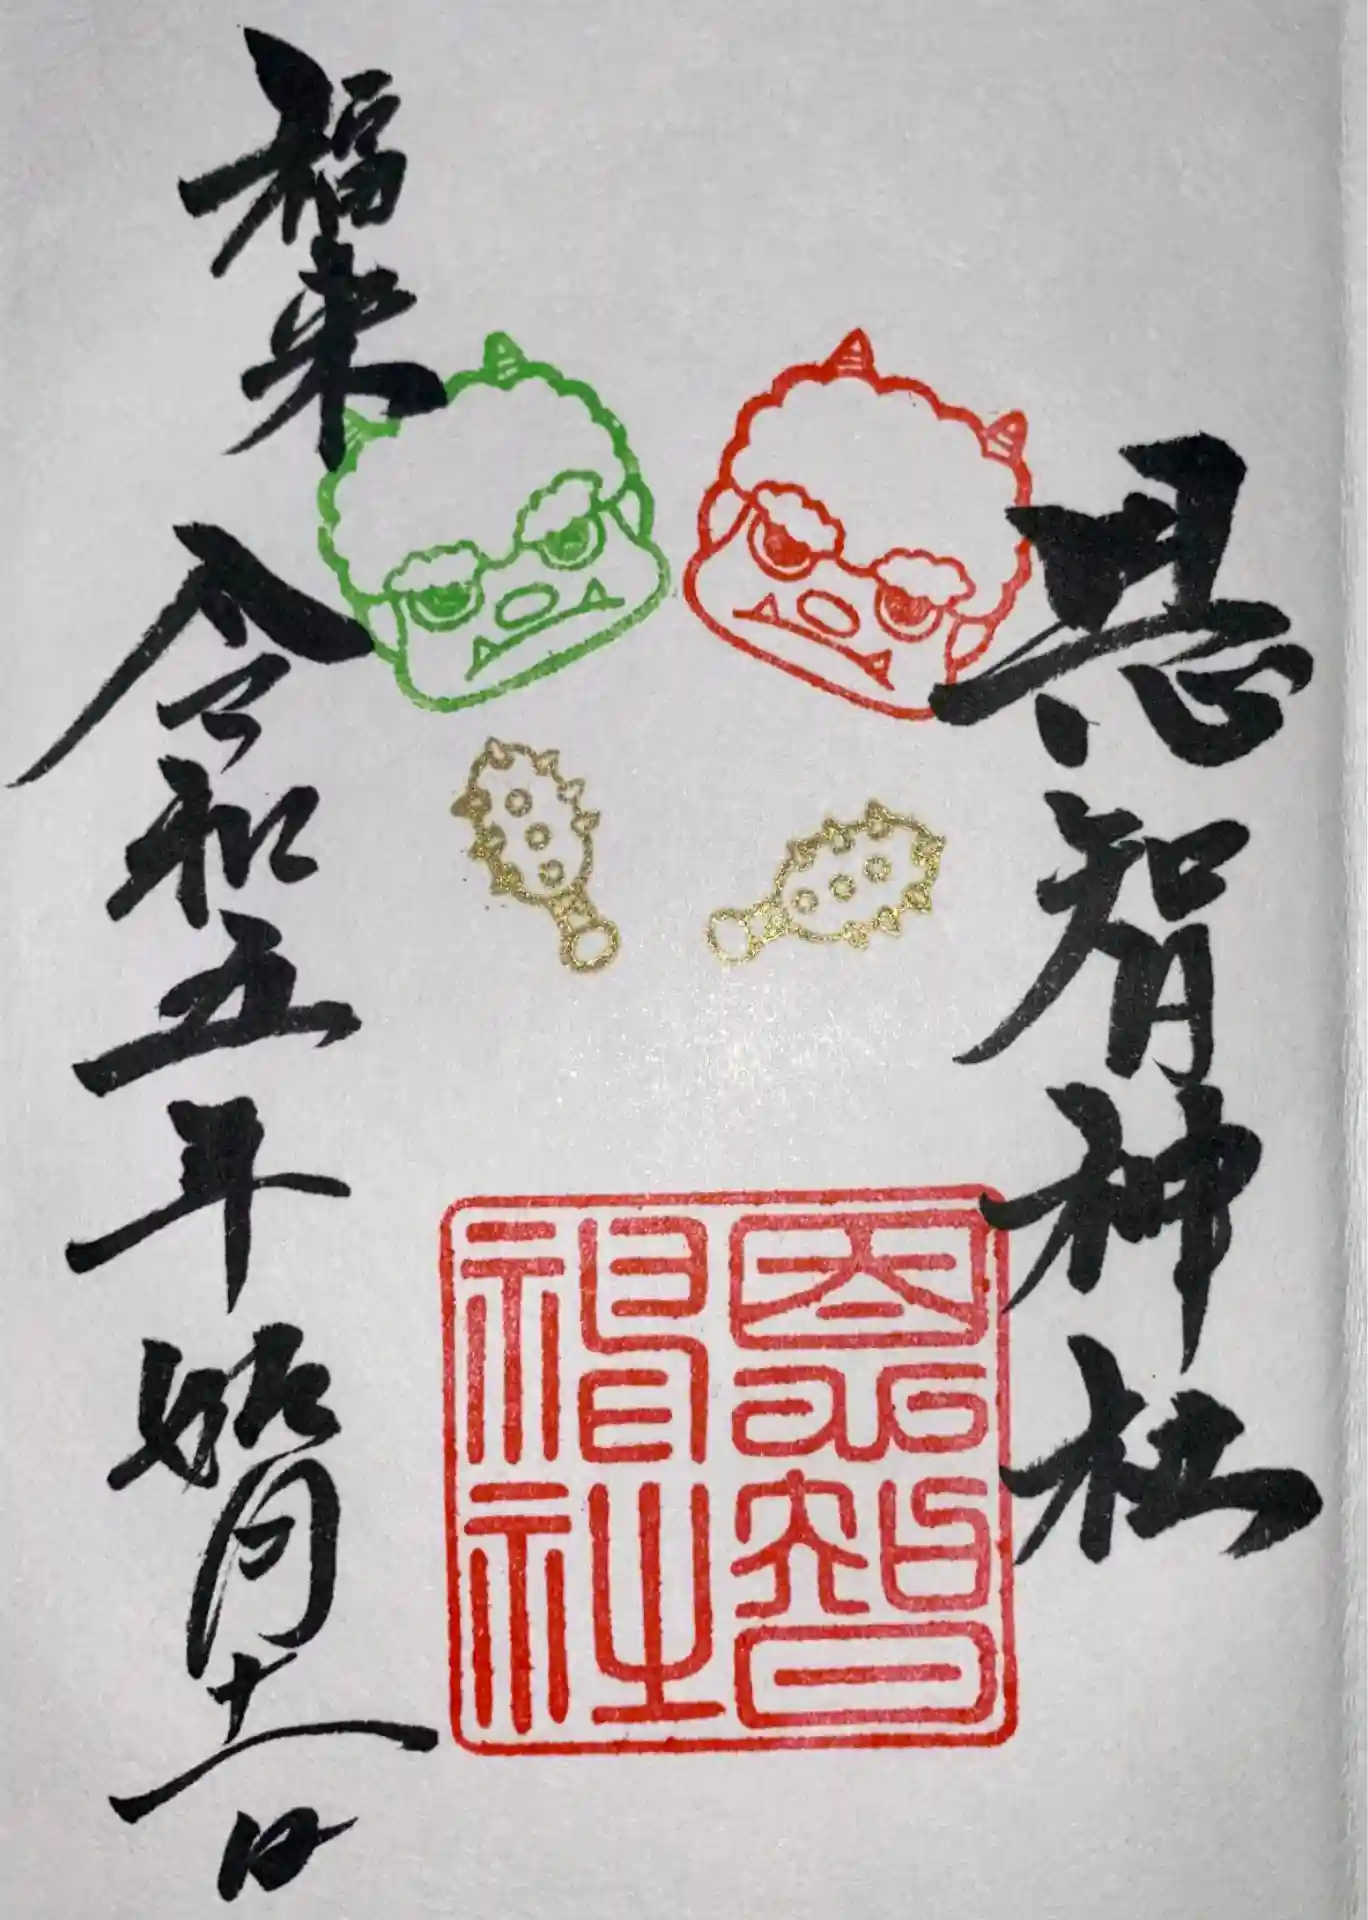 恩智神社
恩智
神社
福来
令和五年如月十二日